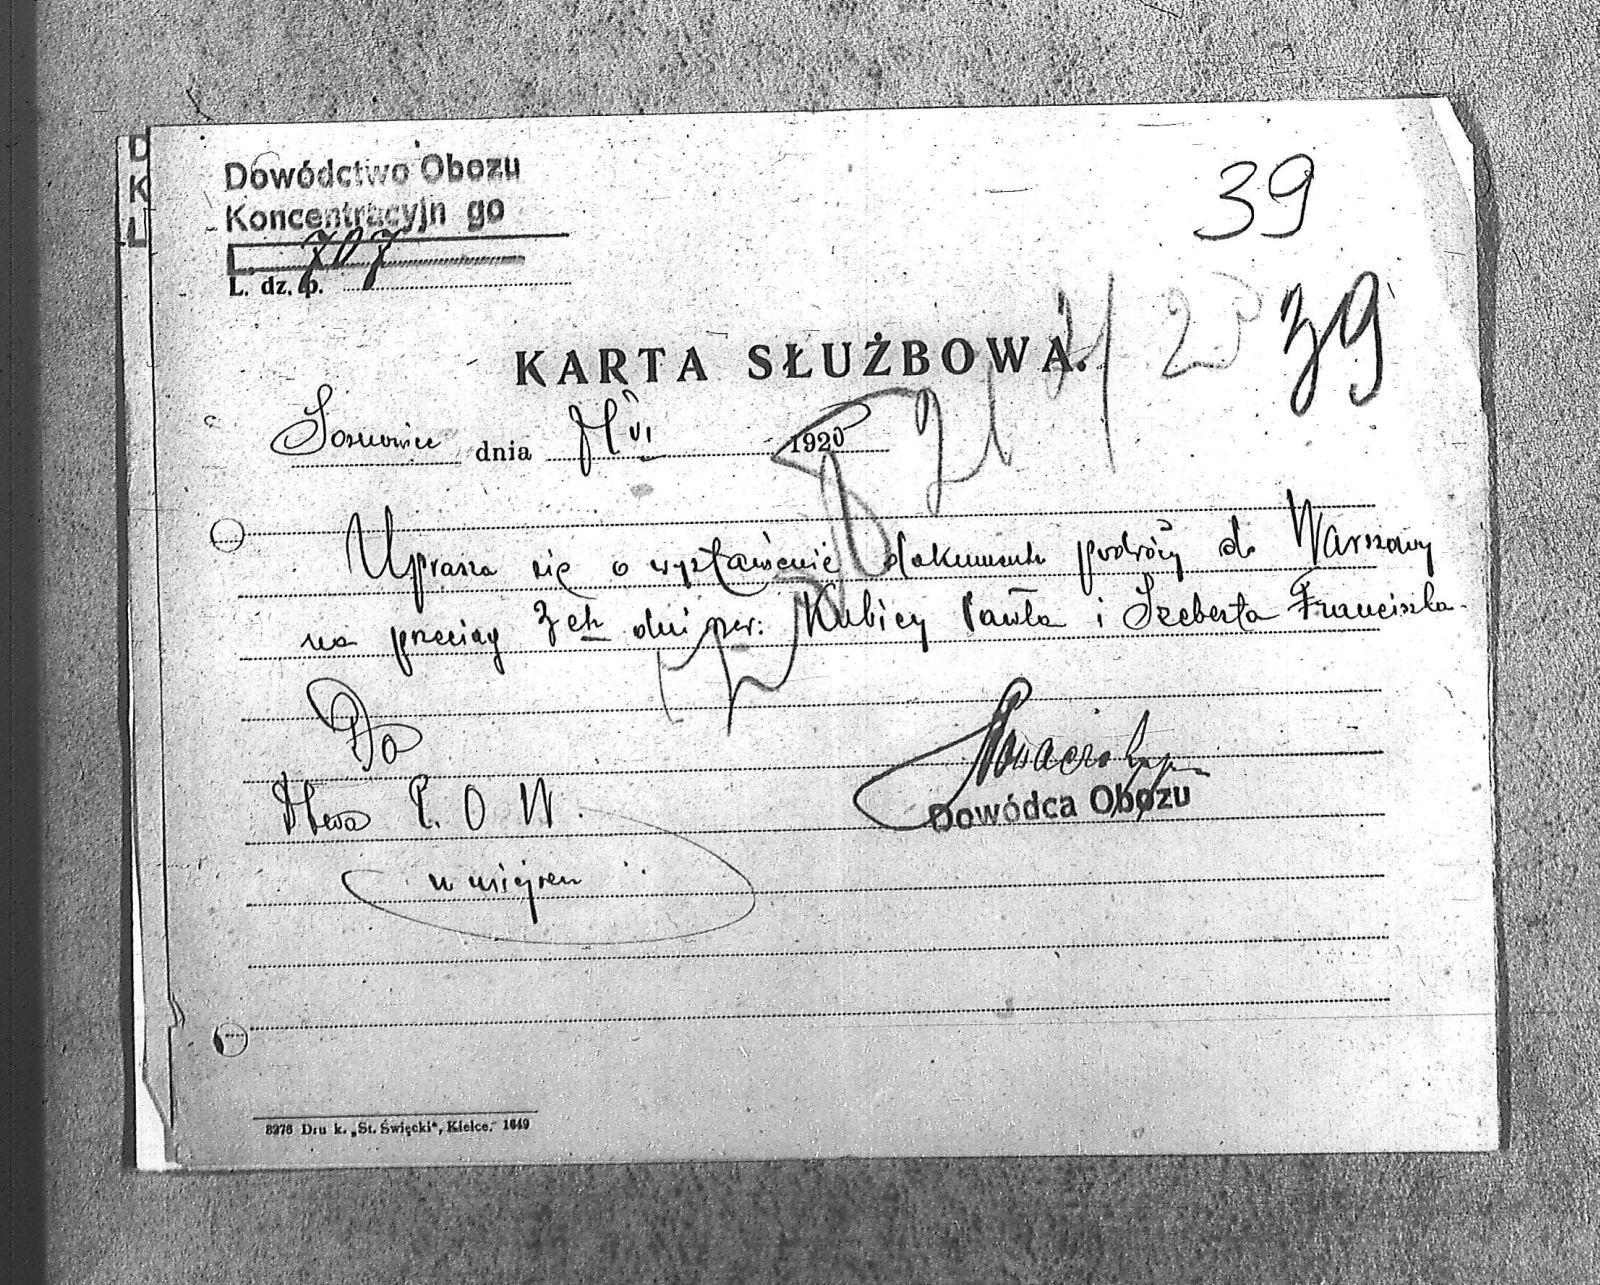 Dowództwo Obozu
Koncentracyjn go
L. 707
L. dz. p.
39
39
KARTA SŁUŻBOWA.
Sosnowiec dnia VI 1920
Uprasza się o wystawienie dokumentu podróży do Warszawy
na przeciąg 3ch dni szer. Kubicy Pawła i Szeberta Franciszka
Do
Dtwa P. O. W.
w miejscu
Dowódca Obozu
8276 Druk. „St. Święcki", Kielce. 1649